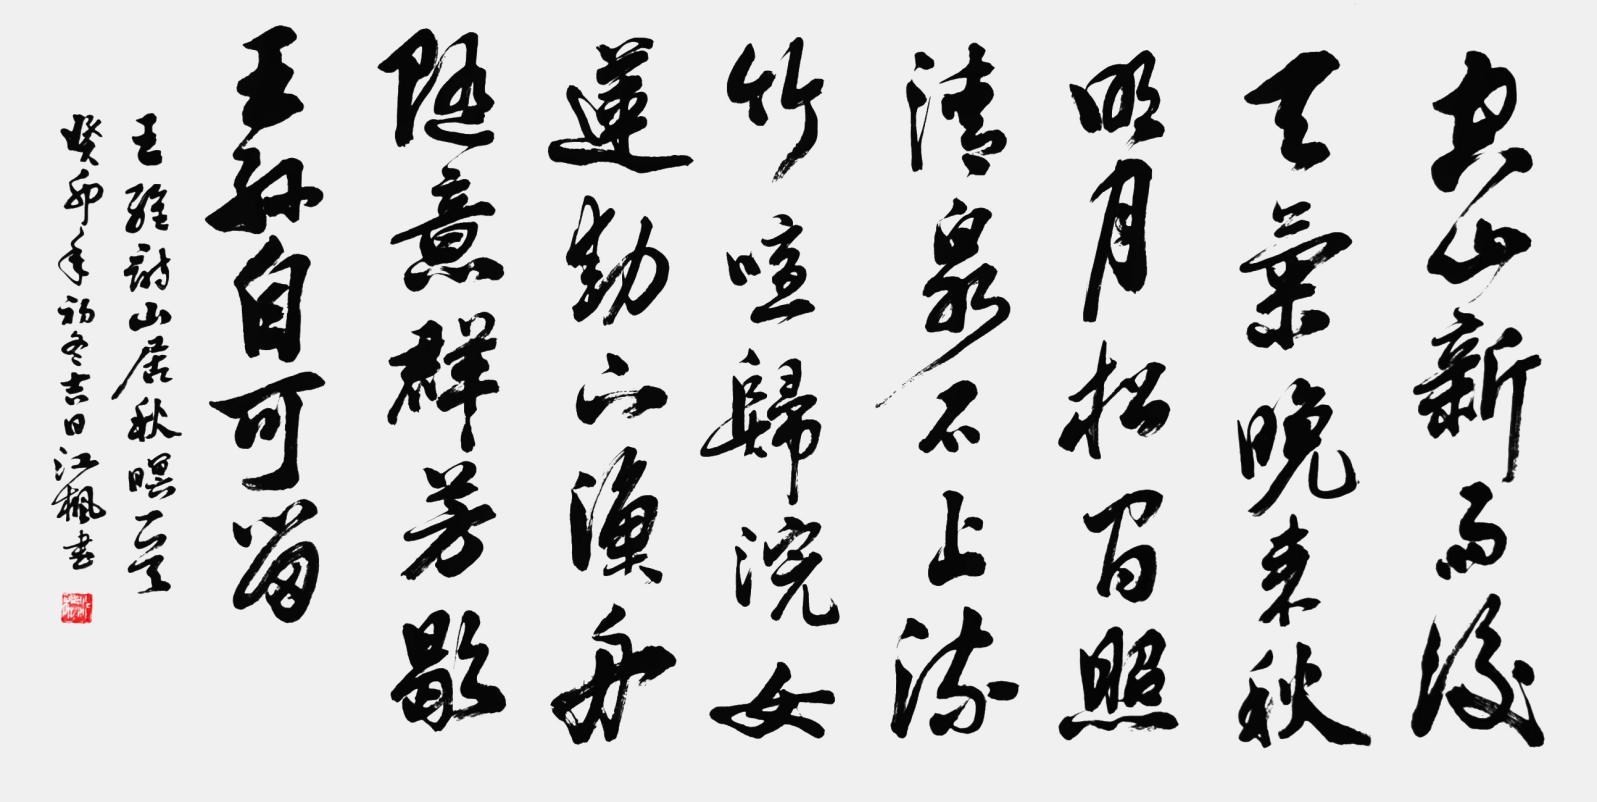 空山新雨後
天氣晚来秋
明月松间照
清泉石上流
竹喧歸浣女
蓮動下漁舟
随意群芳歇
王孫自可留
王維詩山居秋暝一首
癸卯年初冬吉日江楓書